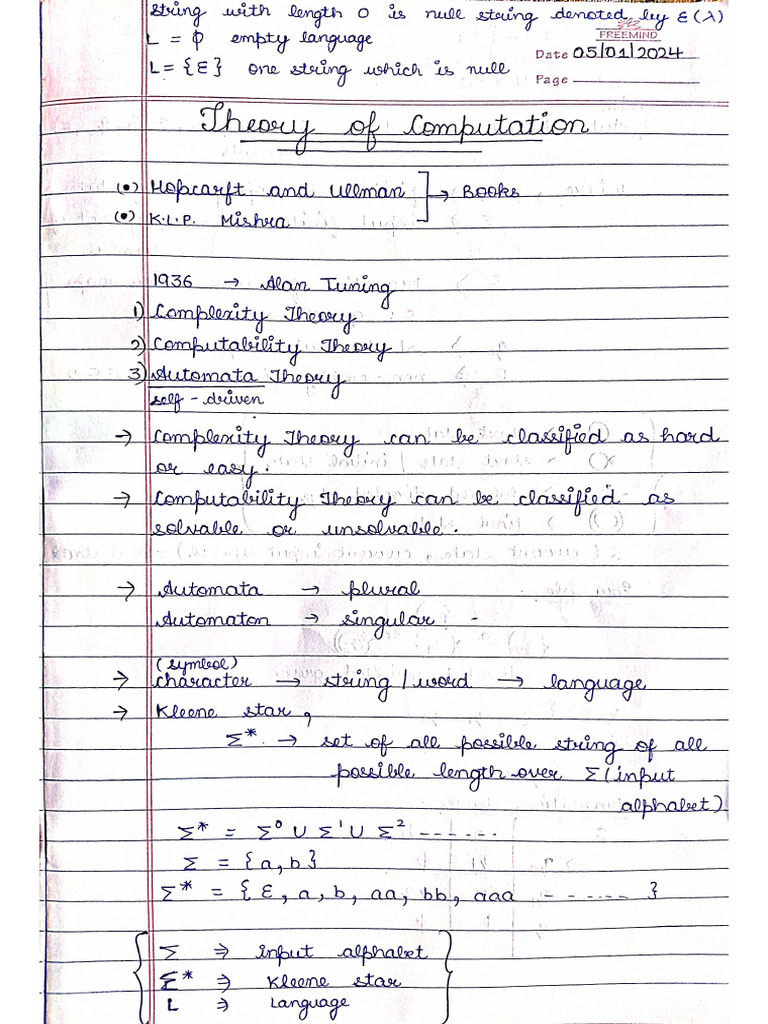 string with length 0 is null string denoted by ε(λ)
L = ϕ empty language
FREEMIND
Date 05/01/2024
L = {ε} one string which is null
Page
Theory of Computation
(•) Hopcarft and Ullman
→ Books
(•) K.L.P. Mishra
1936 → Alan Turing
1) Complexity Theory
2) Computability Theory
3) Automata Theory
self - driven
→ Complexity Theory can be classified as hard
or easy.
→ Computability Theory can be classified as
solvable or unsolvable.
→ Automata → plural
Automaton → singular -
(symbol)
→ character → string / word → language
→ Kleene star,
Σ* → set of all possible string of all
possible length over Σ (input
alphabet)
Σ* = Σ⁰ ∪ Σ¹ ∪ Σ² -------
Σ = {a, b}
Σ* = { ε, a, b, aa, bb, aaa ------- }
Σ ⇒ input alphabet
Σ* ⇒ Kleene star
L ⇒ Language